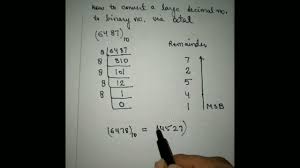 How to convert a large decimal no.
to binary no. via octal
(6487)10
Remainder
8 6487
8 810 7
8 101 2
8 12 5
8 1 4
0 1 MSB
(6478)10 = 14527)